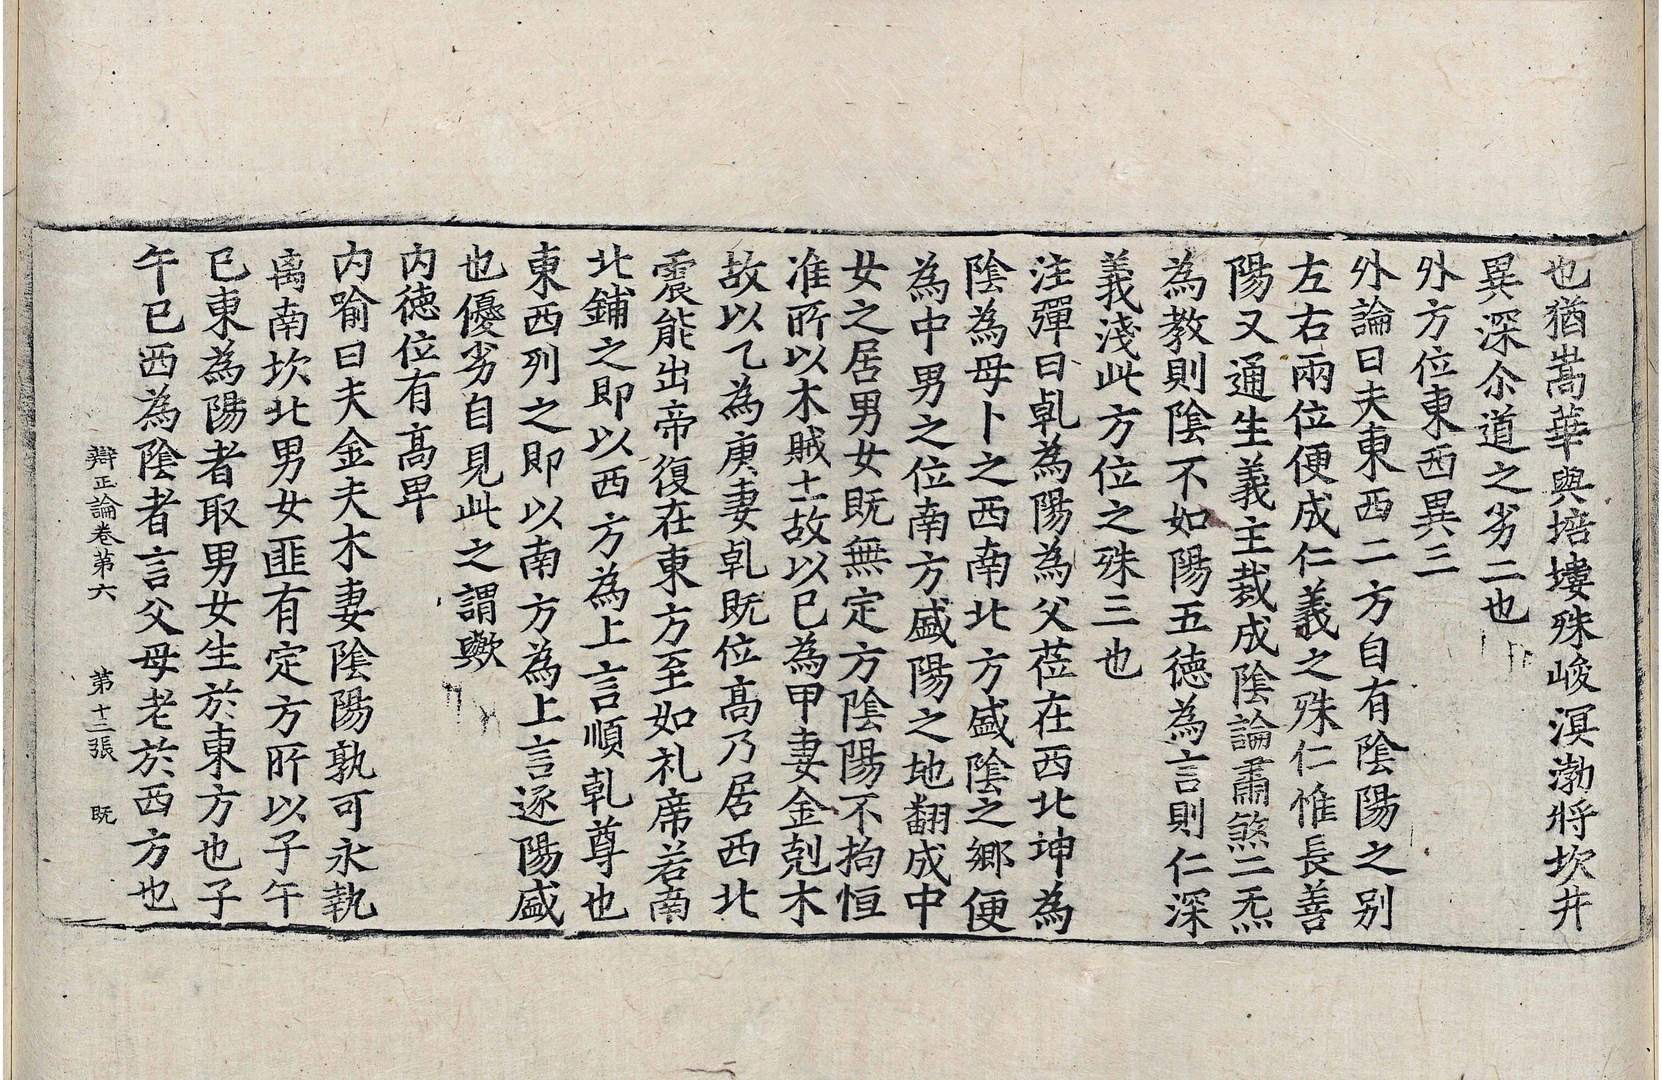 也猶嵩華與培塿殊峻溟渤將坎井
異深尒道之劣二也
外方位東西異三
外論曰夫東西二方自有陰陽之别
左右兩位便成仁義之殊仁惟長善
陽又通生義主裁成陰論肅煞二炁
為教則陰不如陽五德為言則仁深
義淺此方位之殊三也
注彈曰乹為陽為父莅在西北坤為
陰為母卜之西南北方盛陰之鄉便
為中男之位南方盛陽之地翻成中
女之居男女既無定方陰陽不拘恒
准所以木賊土故以巳為甲妻金剋木
故以乙為庚妻乹既位高乃居西北
震能出帝復在東方至如礼席若南
北鋪之即以西方為上言順乹尊也
東西列之即以南方為上言逐陽盛
也優劣自見此之謂歟
内德位有高卑
内喻曰夫金夫木妻陰陽孰可永執
离南坎北男女匪有定方所以子午
巳東為陽者取男女生於東方也子
午巳西為陰者言父母老於西方也
辯正論卷第六 第十二張 既